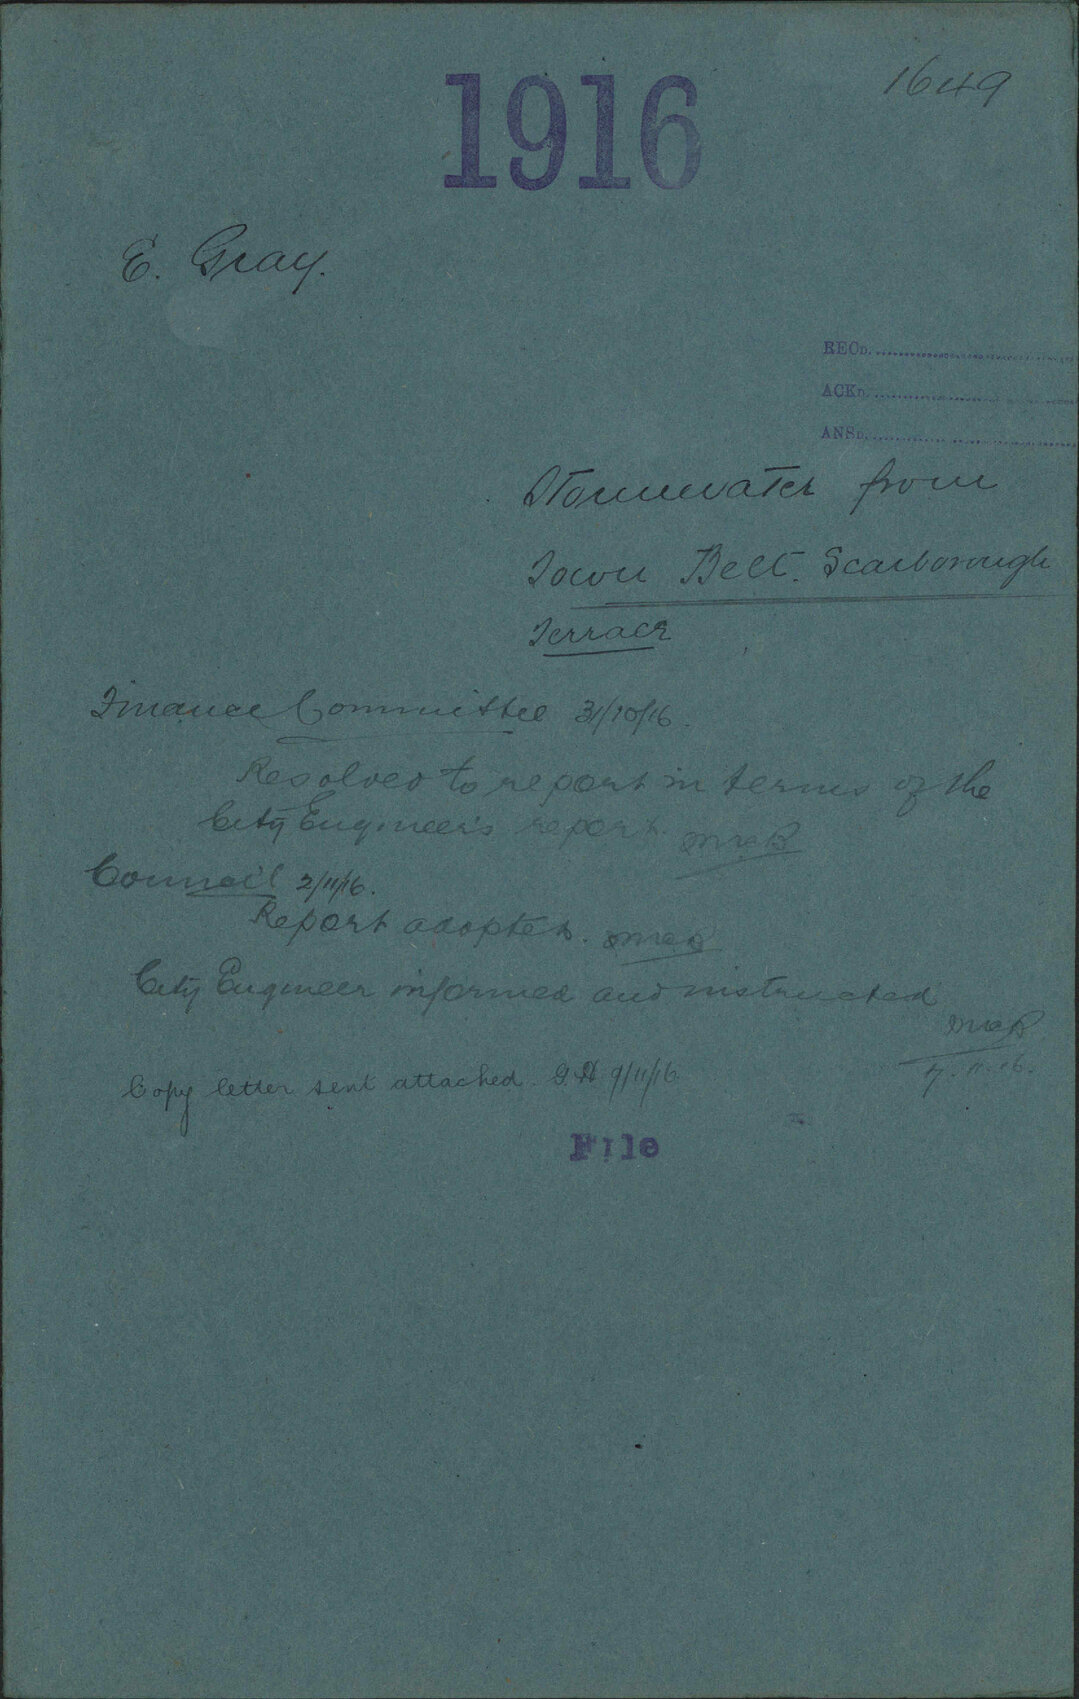 1649
1916
E. Gray.
RECD.
ACKD.
ANSD.
Stormwater from
Town Belt. Scarborough
Terrace
Finance Committee 31/10/16.
Resolved to report in terms of the
City Engineer's report.
Council 2/11/16.
Report adopted.
City Engineer informed and instructed
7.11.16.
Copy letter sent attached. G.H 9/11/16
File